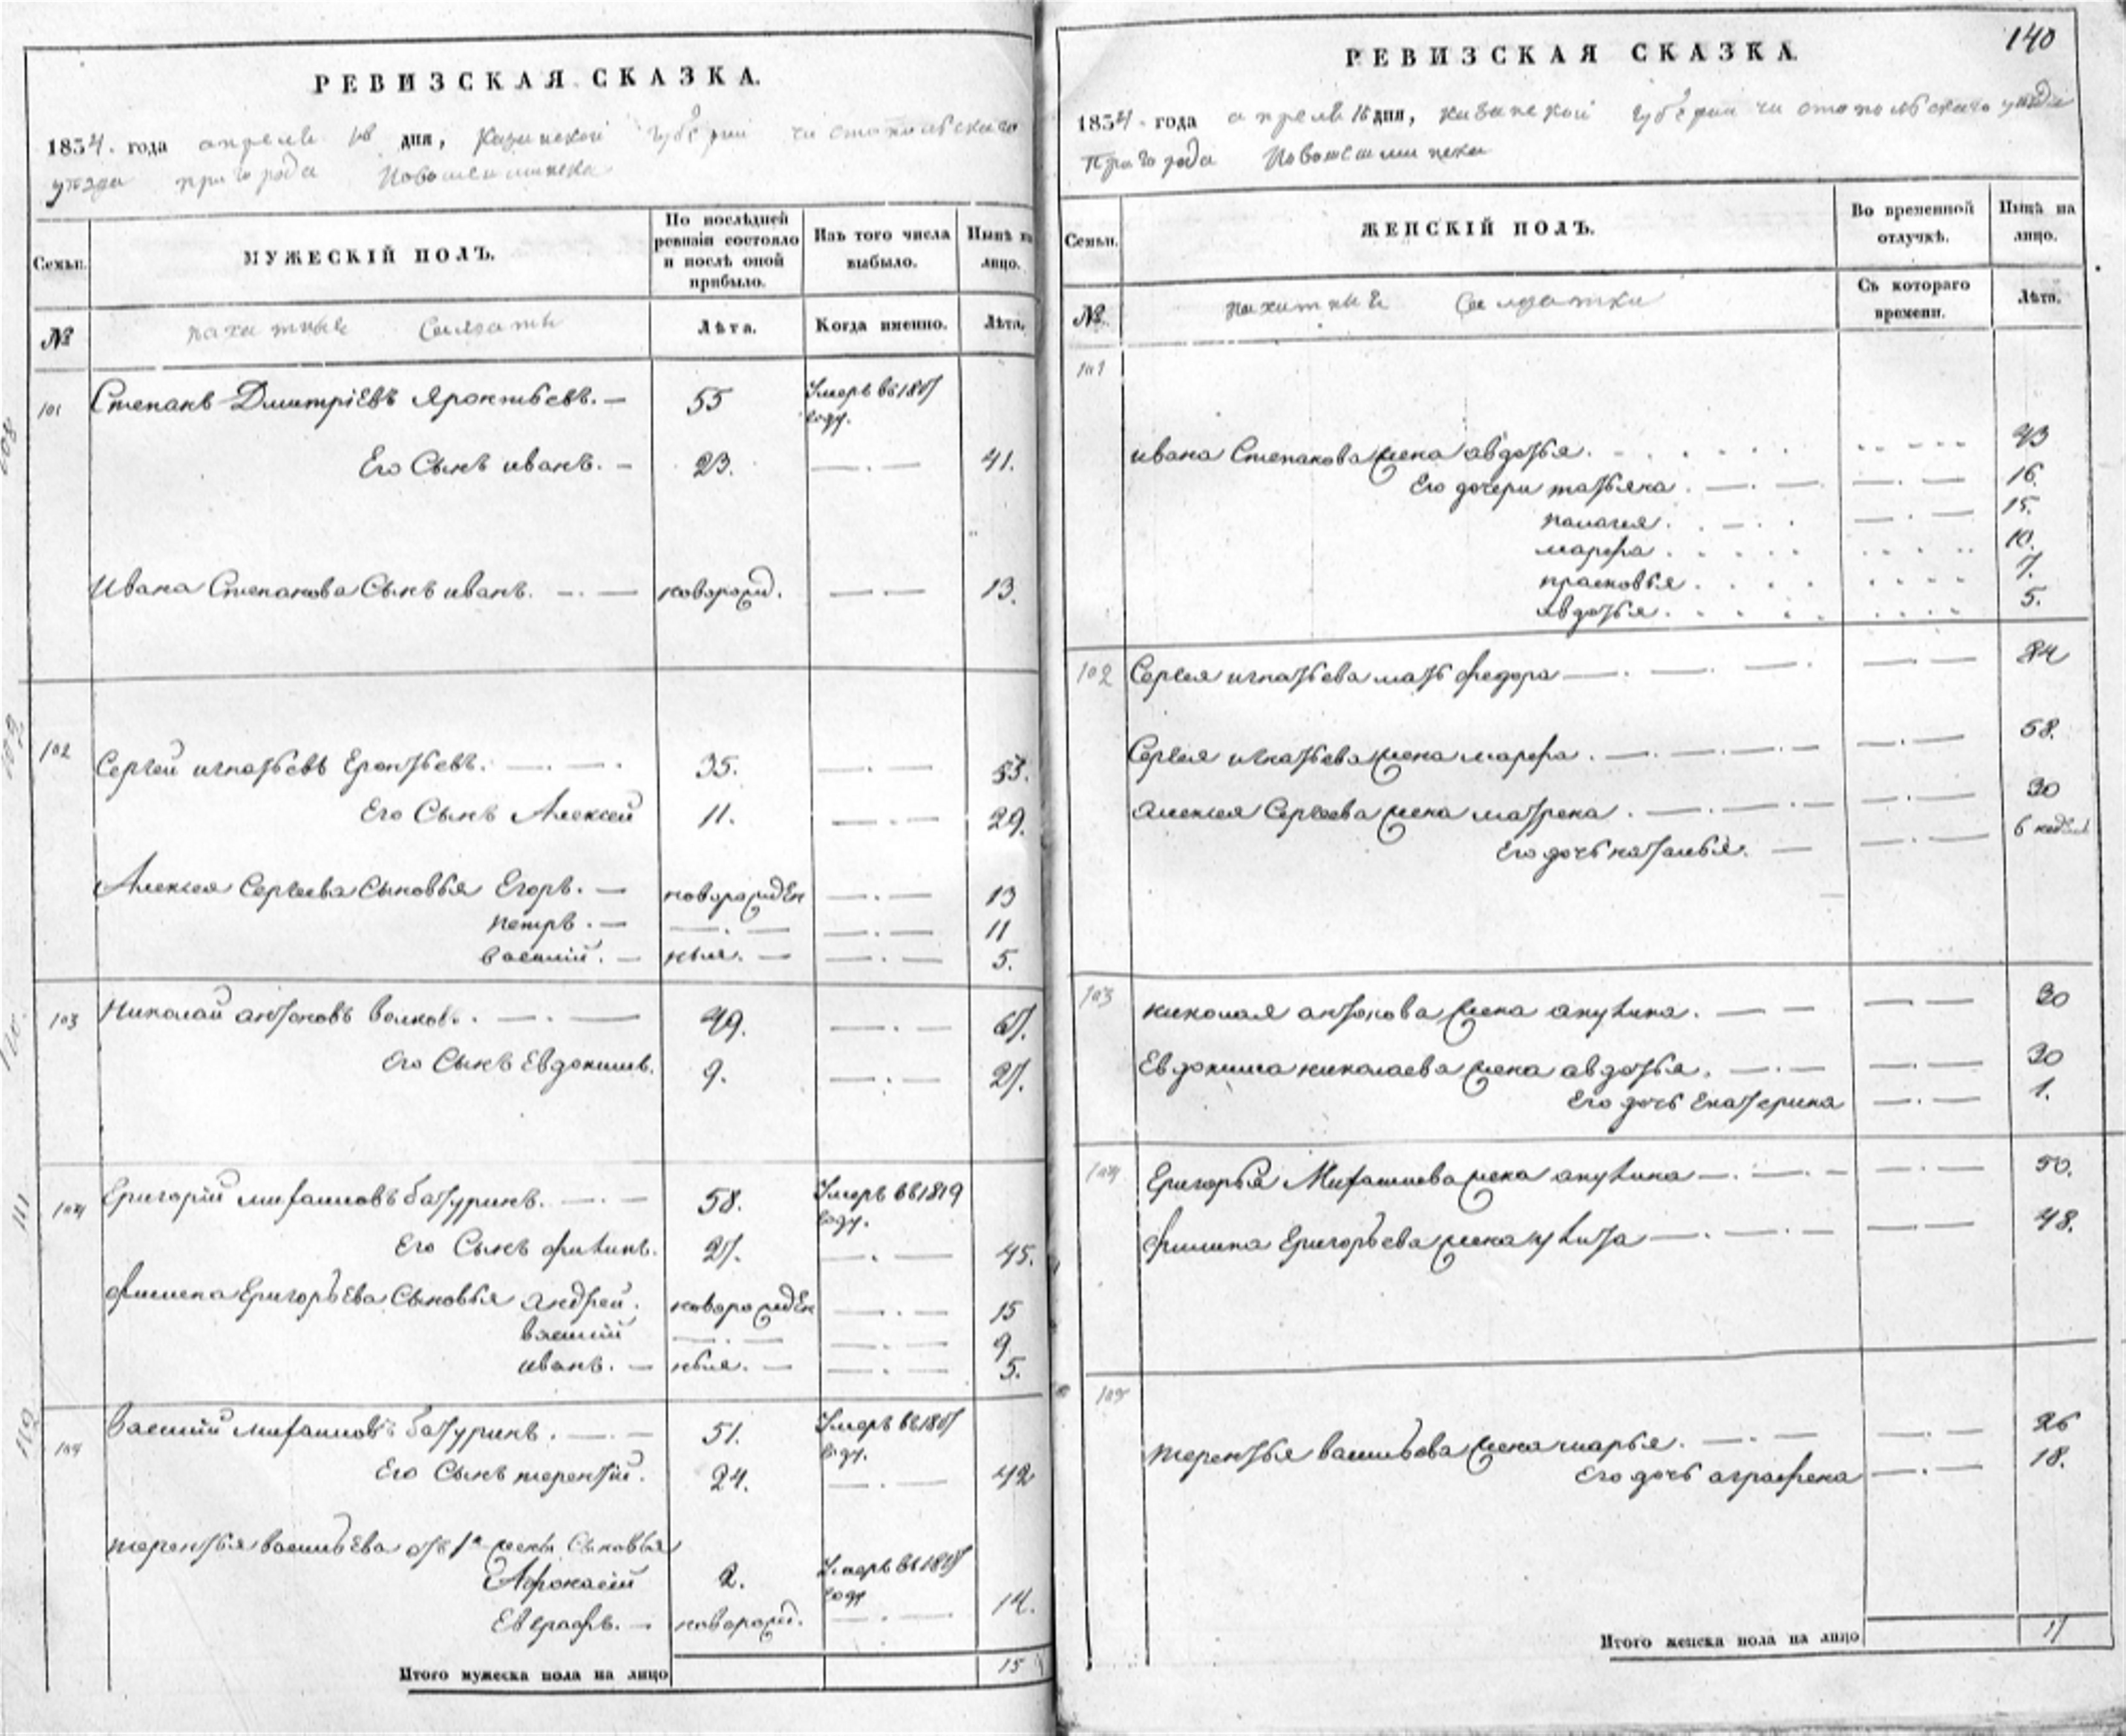 РЕВИЗСКАЯ СКАЗКА.
1834. года апреля дня, Казанской губернии чистопольскаго
уезда пригорода Новошешминска
Семьи.
МУЖЕСКІЙ ПОЛЪ.
По послѣдней ревизіи состояло и послѣ оной прибыло.
Изъ того числа выбыло.
Нынѣ на лицо.
№
пахатные Солдаты
Лѣта.
Когда именно.
Лѣта.
101 Степанъ Дмитріевъ Яронтьевъ. — 55 Умеръ въ 1817 году.
Его Сынъ иванъ. — 23. — . — 41.
Ивана Степанова Сынъ иванъ. — . — новорожд. — — 13.
102 Сергей игнатьевъ Еронтьевъ. — . — . 35. — . — 53.
Его Сынъ Алексей 11. — . — 29.
Алексея Сергеева Сыновья Егоръ. — новорожден — . — 13
петръ. — — . — — . — 11
василий. — ныя. — — . — 5.
103 Николай антоновъ волковъ. — . — 49. — . — 67.
Его Сынъ Евдокимъ. 9. — . — 27.
104 Григорій михаиловъ батуринъ. — . — 58. Умеръ въ 1819 году.
Его Сынъ филипъ. 27. — . — 45.
филипа Григорьева Сыновья андрей. новорожден — . — 15
василий — . — — . — 9
иванъ. — ныя. — — . — 5.
105 Василий михаиловъ батуринъ. — . — 51. Умеръ въ 1817 году.
Его Сынъ терентій. 24. — . — 42
терентья васильева отъ 1й жены Сыновья
Афонасій 2. Умеръ въ году
Евграфъ. — новорожд. — . — 14.
Итого мужеска пола на лицо 15
140
РЕВИЗСКАЯ СКАЗКА.
1834. года апреля 16 дня, казанской губернии чистопольскаго уезда
Пригорода Новошешминска
Семьи.
ЖЕНСКІЙ ПОЛЪ.
Во временной отлучкѣ.
Нынѣ на лицо.
№
пахатные Солдатки
Съ котораго времени.
Лѣта.
101
ивана Степанова жена авдотья. 43
Его дочери татьяна. — . — — . — 16.
палагея. — . — 15.
марфа. 10.
прасковья. 7.
авдотья. 5.
102 Сергея игнатьева мать федора — . — . — — . — 84
Сергея игнатьева жена марфа. — . — . — . — — . — 58.
алексея Сергеева жена матрена. — . — . — . — — . — 30
Его дочь наталья. — — . — 6 недель
103 николая антонова жена акулина. — — — . — 30
Евдокима николаева жена авдотья. — . — — . — 30
Его дочь Екатерина — . — 1.
104 Григорья Михаилова жена акулина — . — . — — . — 50.
филипа Григорьева жена улита — . — . — . — — . — 48.
105
терентья васильева жена марья. — . — — . — 26
Его дочь аграфена — . — 18.
Итого женска пола на лицо 17